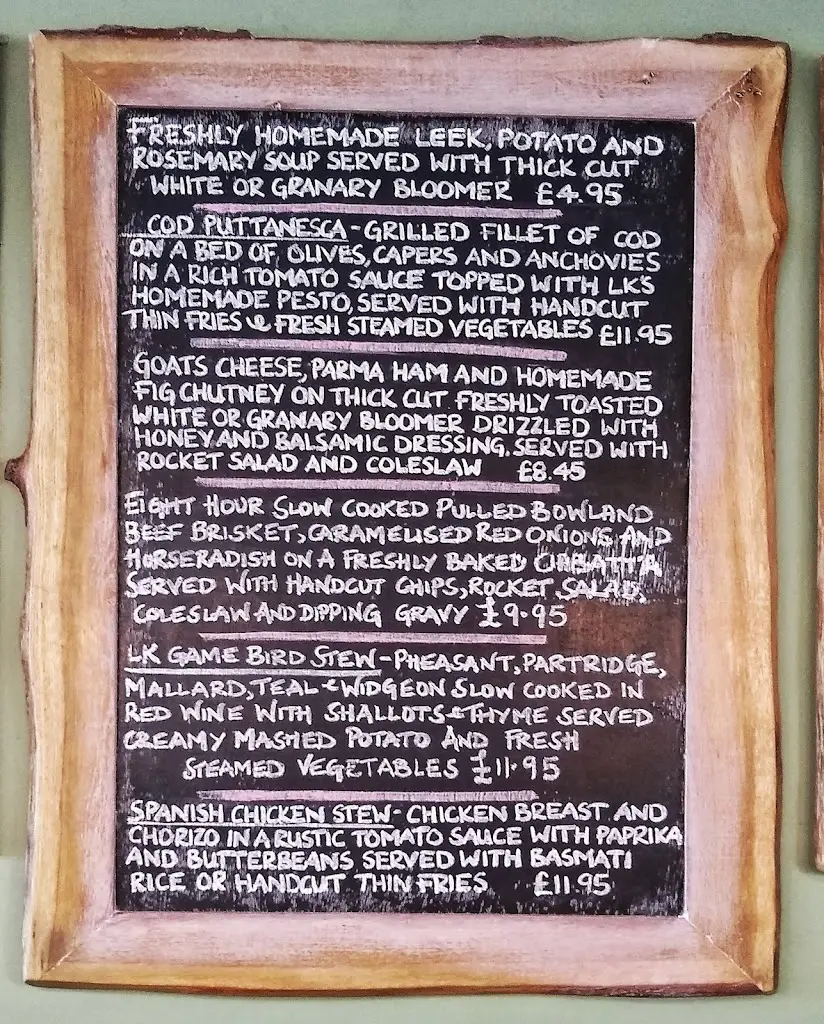 FRESHLY HOMEMADE LEEK, POTATO AND
ROSEMARY SOUP SERVED WITH THICK CUT
WHITE OR GRANARY BLOOMER £4.95
COD PUTTANESCA - GRILLED FILLET OF COD
ON A BED OF, OLIVES, CAPERS AND ANCHOVIES
IN A RICH TOMATO SAUCE TOPPED WITH LK'S
HOMEMADE PESTO, SERVED WITH HANDCUT
THIN FRIES & FRESH STEAMED VEGETABLES £11.95
GOATS CHEESE, PARMA HAM AND HOMEMADE
FIG CHUTNEY ON THICK CUT FRESHLY TOASTED
WHITE OR GRANARY BLOOMER DRIZZLED WITH
HONEY AND BALSAMIC DRESSING. SERVED WITH
ROCKET SALAD AND COLESLAW £8.45
EIGHT HOUR SLOW COOKED PULLED BOWLAND
BEEF BRISKET, CARAMELISED RED ONIONS AND
HORSERADISH ON A FRESHLY BAKED CIABATTA
SERVED WITH HANDCUT CHIPS, ROCKET SALAD,
COLESLAW AND DIPPING GRAVY £9.95
LK GAME BIRD STEW - PHEASANT, PARTRIDGE,
MALLARD, TEAL & WIDGEON SLOW COOKED IN
RED WINE WITH SHALLOTS & THYME SERVED
CREAMY MASHED POTATO AND FRESH
STEAMED VEGETABLES £11.95
SPANISH CHICKEN STEW - CHICKEN BREAST AND
CHORIZO IN A RUSTIC TOMATO SAUCE WITH PAPRIKA
AND BUTTERBEANS SERVED WITH BASMATI
RICE OR HANDCUT THIN FRIES £11.95